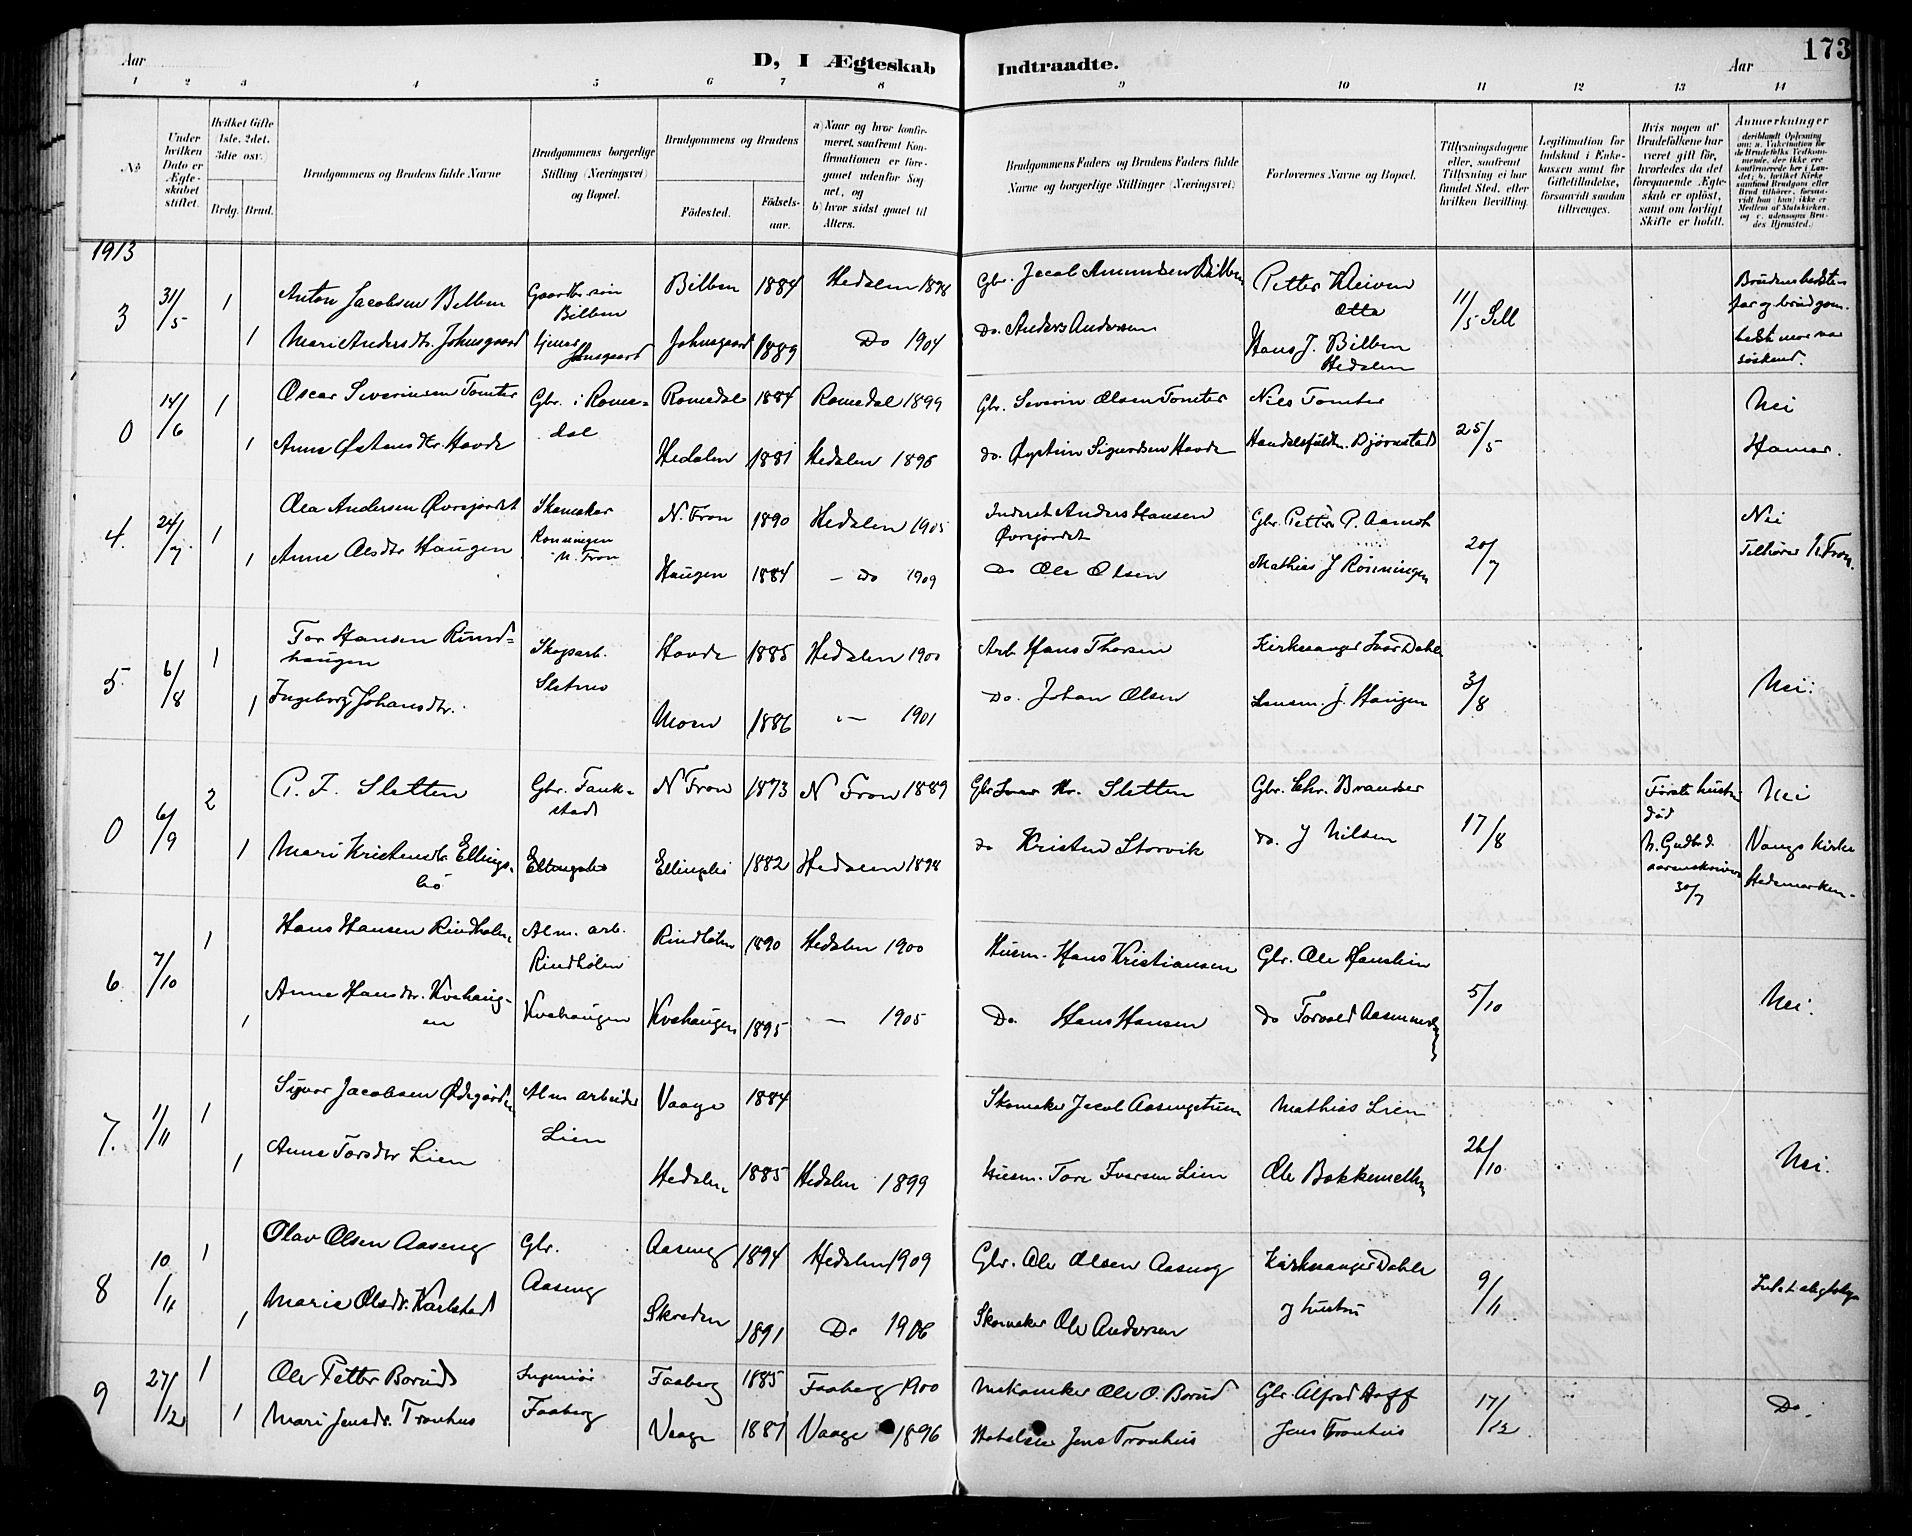 173
Aar
D, I Ægteskab
Indtraadte.
Aar
1 2 3 4 5 6 7 8 9 10 11 12 13 14
No.
Under hvilken Dato er Ægteskabet stiftet.
Hvilket Gifte 1ste, 2det, 3die osv.)
Brdg. Brud.
Brudgommens og Brudens fulde Navne
Brudgommens borgerlige Stilling (Næringsvei) og Bopæl.
Brudgommens og Brudens
Fødested.
Fødselsaar.
a) Naar og hvor konfirmeret, saafremt Konfirmationen er foregaaet udenfor Sognet, og
b) hvor sidst gaaet til Alters.
Brudgommens Faders og Brudens Faders fulde Navne og borgerlige Stillinger (Næringsvei)
Forlovernes Navne og Bopæl.
Tillysningsdagene eller, saafremt Tillysning ei har fundet Sted, efter hvilken Bevilling.
Legitimation for Indskud i Enkekassen samt for Giftetilladelse, forsaavidt saadan tiltrænges.
Hvis nogen af Brudefolkene har været gift før, hvorledes da det foregaaende Ægteskab er opløst, samt om lovligt Skifte er holdt.
Anmærkninger
1913
3 31/5 1 Anton Jacobsen Bilben Gaardbr. søn Bilben Bilben 1884 Hedalen 1898 Gbr. Jacob Amundsen Bilben Petter Kleiven Otta 11/5 Sell Brudens bedstefar og brudgom. bedstemor var søskend.
1 Mari Andersdtr. Johnsgaard Johnsgaard Johnsgaard 1889 Do 1904 Do. Anders Andersen Hans J. Bilben Hedalen
0 14/6 1 Oscar Severinsen Tomter Gbr. i Romedal Romedal 1884 Romedal 1899 Gbr. Severin Olsen Tomter Nils Tomter 25/5 Nei
1 Anne Østensdtr. Hovde Hedalen 1881 Hedalen 1896 do. Øystein Sigurdsen Hovde Handelsfuldm. Bjørnstad Hamar.
4. 24/7 1 Ola Andersen Øvrejordet Skomaker Rønningen N. Fron N. Fron 1890 Hedalen 1905 Inderst Anders Hansen Øvrejordet Gbr. Petter P. Aamot 20/7 Nei
1 Anne Olsdtr Haugen Haugen 1884 - Do 1909 Do Ole Olsen Mathias J Rønningen Tilhører N. Fron.
5. 6/8 1 Tor Hansen Rundhaugen Skogsarb. Sletmo Hovde 1885 Hedalen 1900 Arb Hans Thorsen Kirkesanger Ivar Dahle 3/8 Nei.
1 Ingeborg Johansdtr. Moen 1886 " 1901 Do. Johan Olsen Lensm. J. Haugen
0 6/9 2 P. I. Sletten Gbr. Tankstad N Fron 1873 N Fron 1889 Gbr Ivar Hr. Sletten Gbr. Chr. Brandser 17/8 Første hustru død N. Gudbrd. sorenskriver 30/7 Nei
1 Mari Kristensdtr. Ellingsbø Ellingsbø Ellingsbø 1882 Hedalen 1898 do Kristen Storvik do. J Nilsen Vangs kirke Hedemarken.
6. 7/10 1 Hans Hansen Rindhølen Alm. arb. Rindhølen Rindhølen 1890 Hedalen 1900 Husm. Hans Kristiansen Gbr. Ole Haustein 5/10 Nei.
1 Anne Hansdtr. Kvehaugen Kvehaugen Kvehaugen 1895 " 1905 Do. Hans Hansen do Torvald Aasmund
7. 1/11 1 Sigvar Jacobsen Ødegården Alm arbeider Lien Vaage 1884 Skomaker Jacob Aasengetuen Mathias Lien 26/10 Nei.
1 Anne Torsdtr Lien Hedalen 1885 Hedalen 1899 Husm. Tore Iversen Lien Ole Bakkemellem
8 10/11 1 Olav Olsen Aaseng Gbr. Aaseng Aaseng 1894 Hedalen 1909 Gbr. Ole Olsen Aaseng Kirkesanger Dahle og hustru 9/11
1 Marie Olsdtr. Karlstad Skreden 1891 Do 1906 Skomaker Ole Andersen
9 27/12 1 Ole Petter Borud Ingeniør Faaberg Faaberg 1885 Faaberg 1900 Mekaniker Ole O. Borud Gbr. Alfred Hoff 17/12 Do.
1 Mari Jensdtr. Tronhus Vaage 1881 Vaage 1896 Hoteleier Jens Tronhus Jens Tronhus